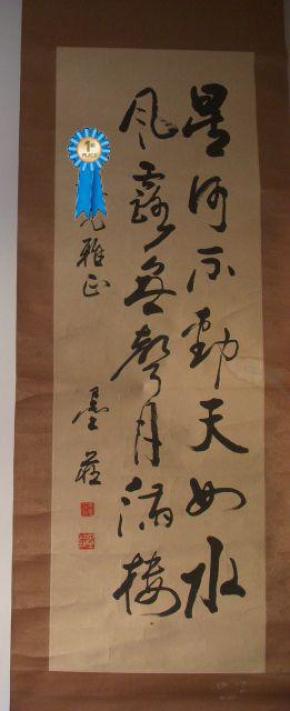 星河不動天如水
風露無聲月滿樓
兄雅正
墨莊
1st
PLACE